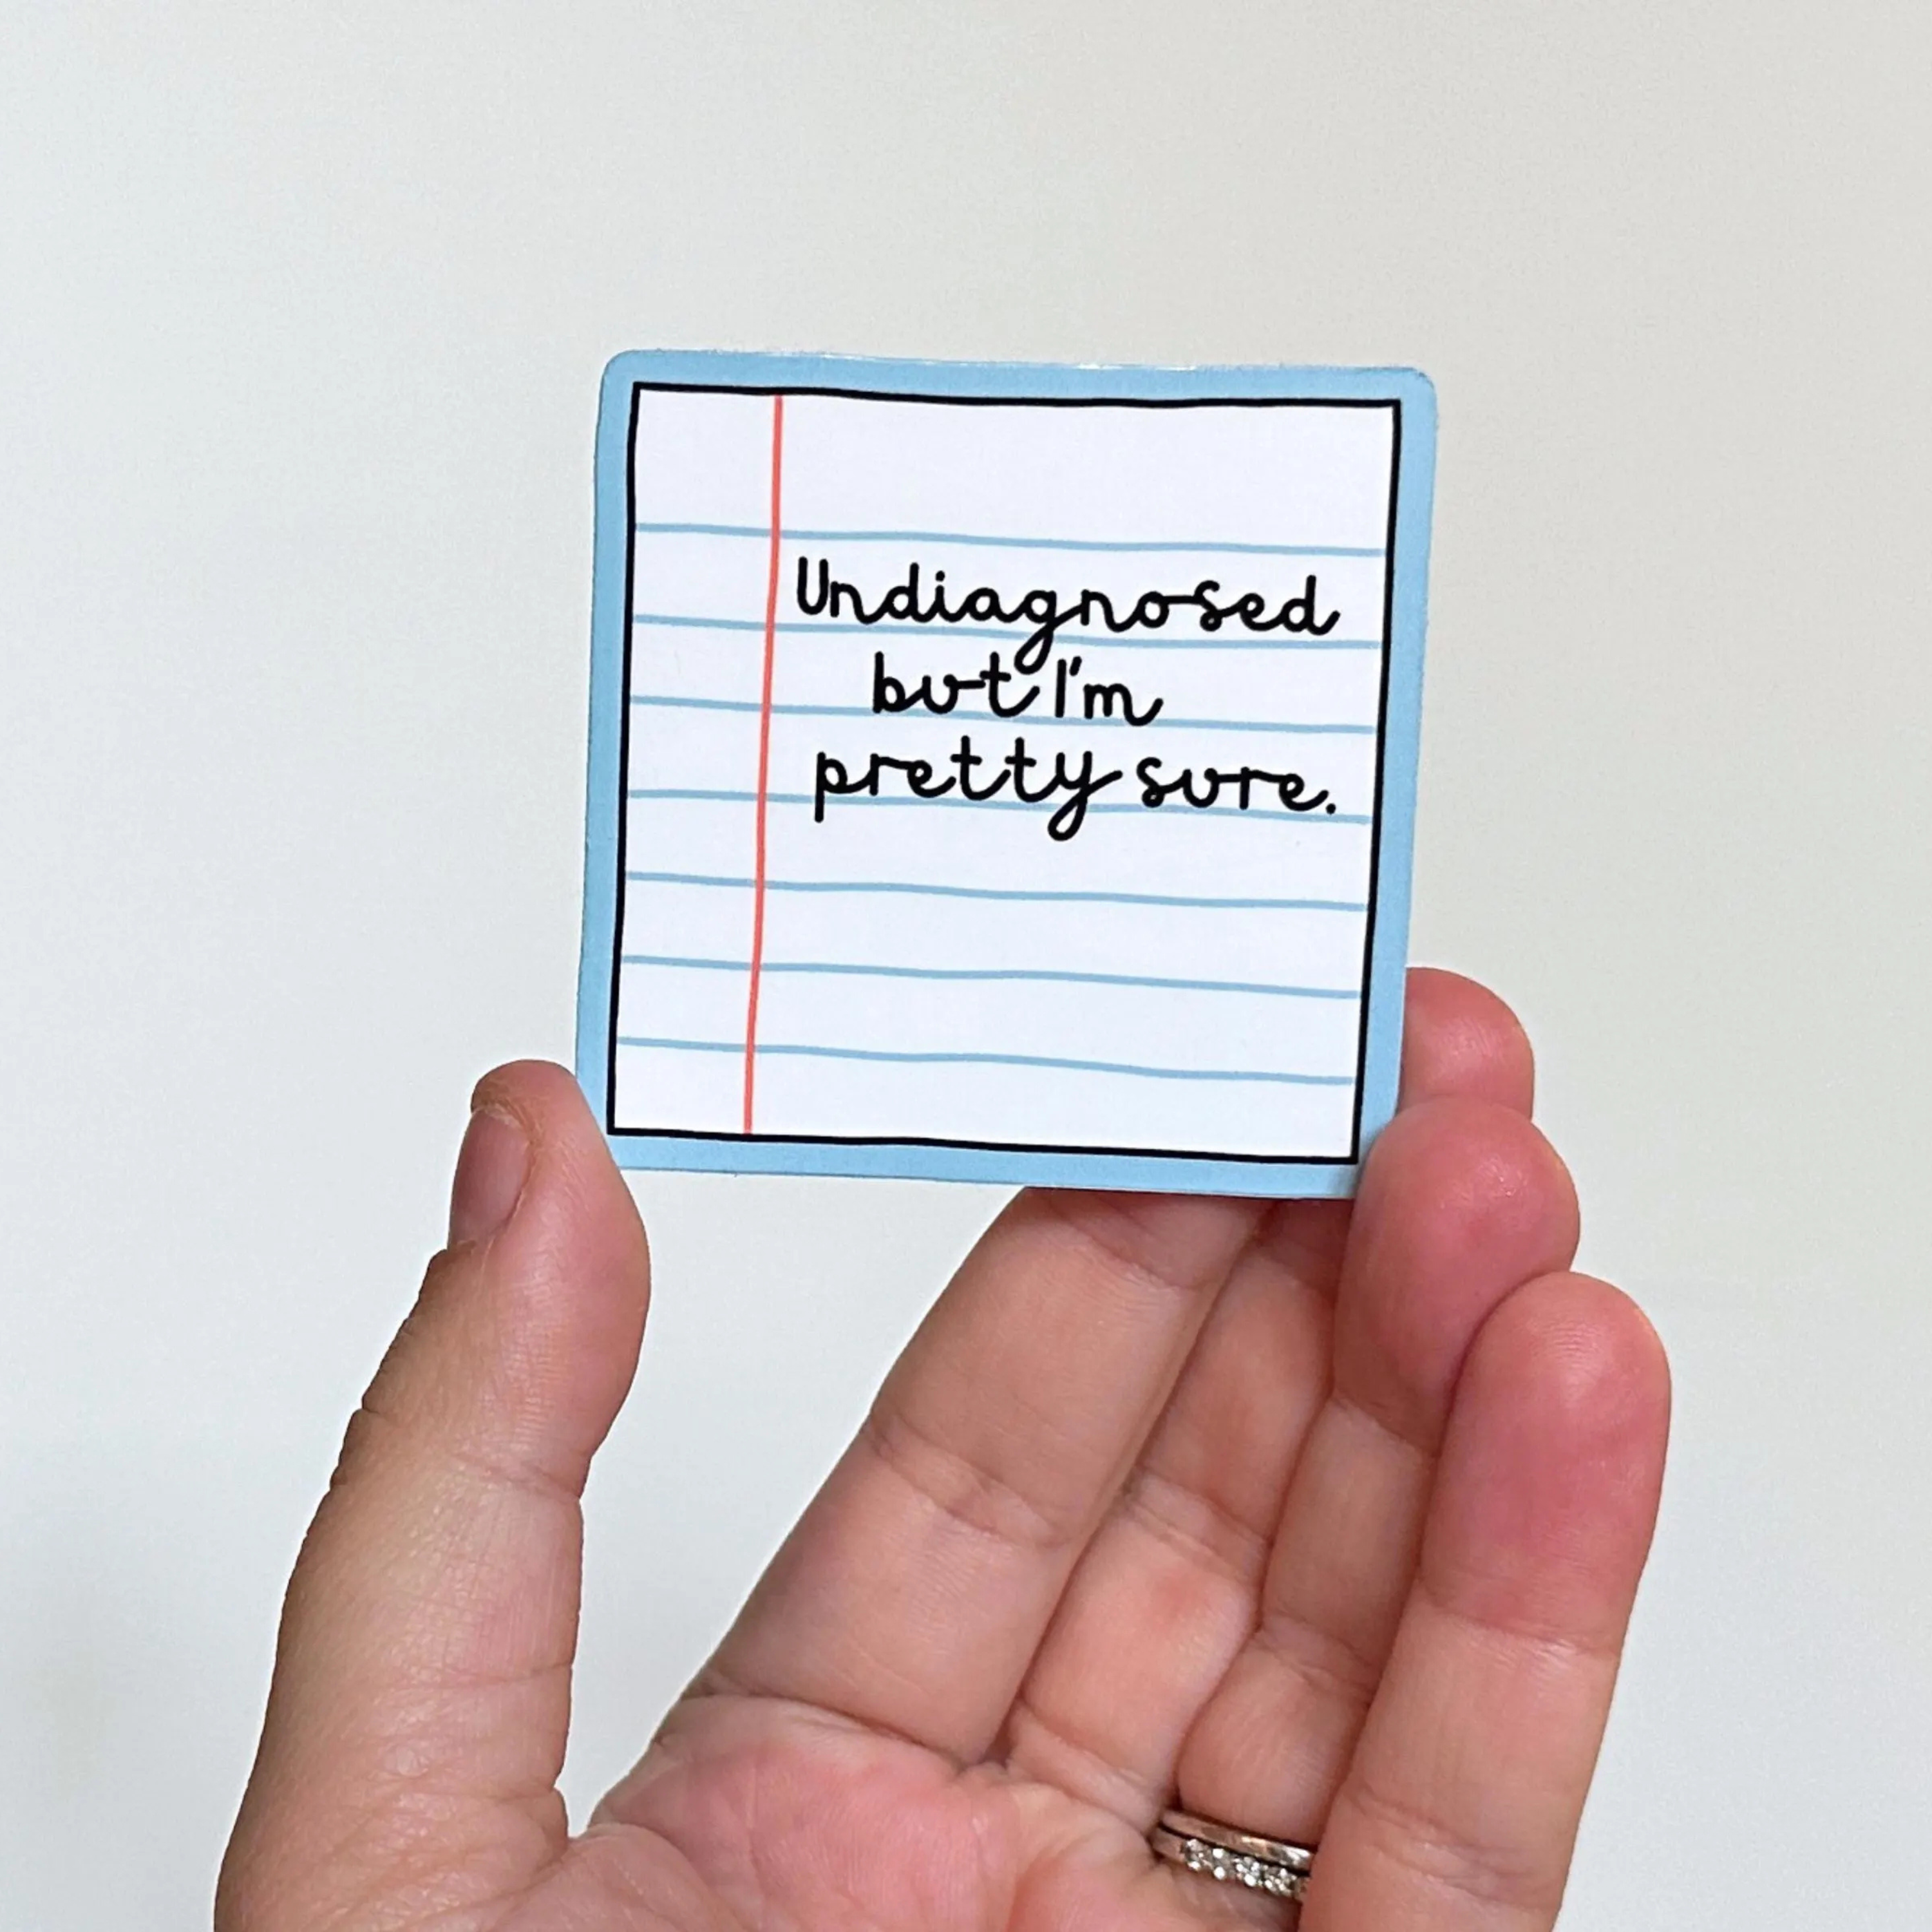 Undiagnosed
but I'm
pretty sure.